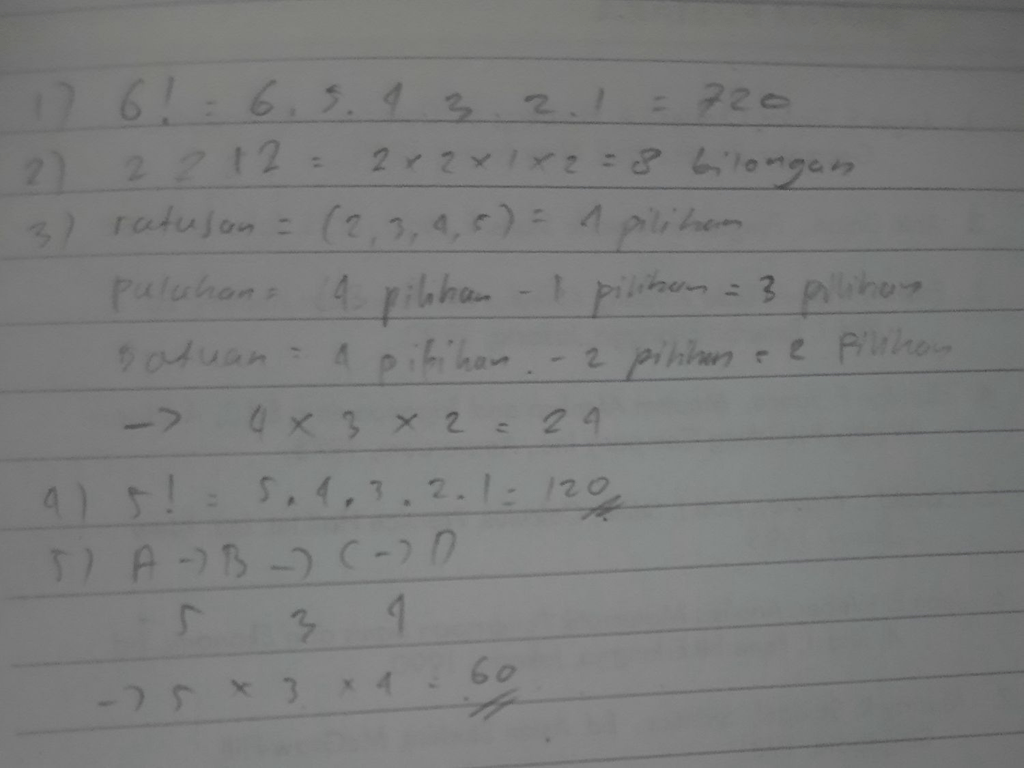 1) 6! = 6.5.4 3 2.1 = 720
2) 2 2 1 2 = 2 x 2 x 1 x 2 = 8 bilangan
3) ratusan = (2, 3, 4, 5) = 4 pilihan
puluhan = 4 pilihan - 1 pilihan = 3 pilihan
satuan = 4 pilihan - 2 pilihan = 2 pilihan
-> 4 x 3 x 2 = 24
4) 5! = 5.4.3.2.1 = 120
5) A -> B -> C -> D
5 3 4
-> 5 x 3 x 4 = 60